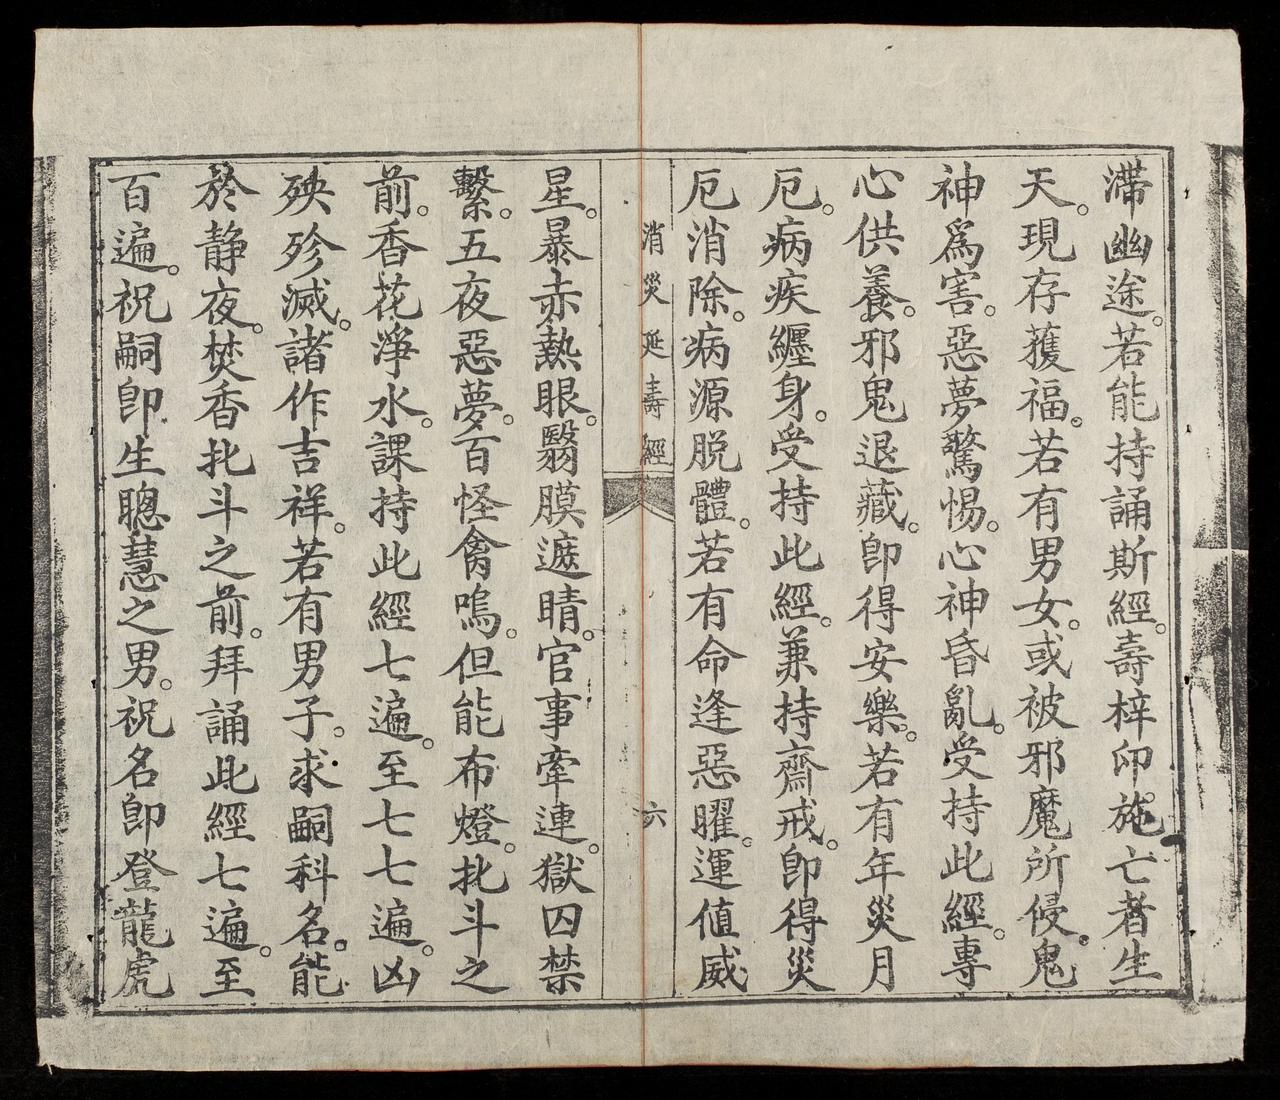 滯幽途。若能持誦斯經。壽梓印施。亡者生
天。現存獲福。若有男女。或被邪魔所侵。鬼
神爲害。惡夢驚惕。心神昏亂。受持此經。專
心供養。邪鬼退藏。卽得安樂。若有年災月
厄。病疾纒身。受持此經。兼持齋戒。卽得災
厄消除。病源脱體。若有命逢惡曜。運値威
消災延壽經
六
星。暴赤熱眼。翳膜遮睛。官事牽連。獄囚禁
繫。五夜惡夢。百怪禽鳴。但能布燈。北斗之
前。香花淨水。課持此經七遍。至七七遍。凶
殃殄滅。諸作吉祥。若有男子。求嗣科名。能
於静夜。焚香北斗之前。拜誦此經七遍。至
百遍。祝嗣卽生聰慧之男。祝名卽登龍虎